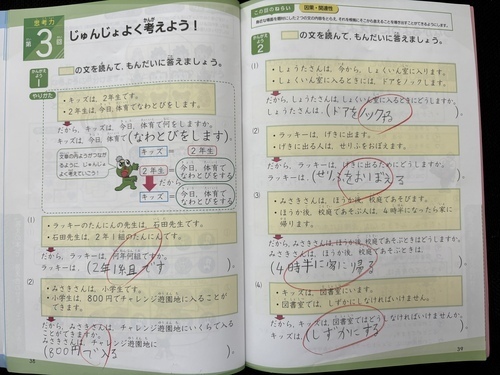 思考力
第3回
じゅんじょよく考えよう！
かんがえよう1
の文を読んで、もんだいに答えましょう。
やりかた
・キッズは、2年生です。
・2年生は、今日、体育でなわとびをします。
だから、キッズは、今日、体育で何をしますか。
キッズは、今日、体育で（なわとびをします）。
文章の内ようがつながるように、じゅんじょよく考えていこう！
キッズ＝2年生
2年生➡今日、体育でなわとびをする
だから
キッズ➡今日、体育でなわとびをする
(1)
・ラッキーのたんにんの先生は、石田先生です。
・石田先生は、2年1組のたんにんです。
だから、ラッキーは、何年何組ですか。
ラッキーは、（2年1組です）。
(2)
・みさきさんは、小学生です。
・小学生は、800円でチャレンジ遊園地に入ることができます。
だから、みさきさんは、チャレンジ遊園地にいくらで入ることができますか。
みさきさんは、チャレンジ遊園地に
（800円で入る）。
38
この回のねらい
因果・関連性
かんがえよう2
の文を読んで、もんだいに答えましょう。
(1)
・しょうたさんは、今から、しょくいん室に入ります。
・しょくいん室に入るときには、ドアをノックします。
だから、しょうたさんは、しょくいん室に入るときにどうしますか。
しょうたさんは、（ドアをノックする）。
(2)
・ラッキーは、げきに出ます。
・げきに出る人は、せりふをおぼえます。
だから、ラッキーは、げきに出るためにどうしますか。
ラッキーは、（せりふをおりぼえる）。
(3)
・みさきさんは、ほうか後、校庭であそびます。
・ほうか後、校庭であそぶ人は、4時半になったら家に帰ります。
だから、みさきさんは、ほうか後、校庭であそぶときはどうしますか。
みさきさんは、ほうか後、校庭であそぶときは、
（4時半に家に帰る）。
(4)
・キッズは、図書室にいます。
・図書室では、しずかにしなければいけません。
だから、キッズは、図書室ではどうしなければいけませんか。
キッズは、（しずかにする）。
39